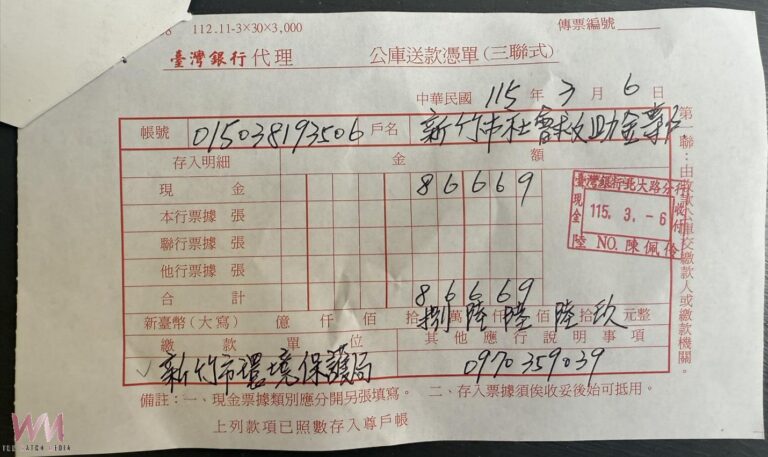 112.11-3×30×3,000
傳票編號
臺灣銀行代理 公庫送款憑單(三聯式)
中華民國 115 年 3 月 6 日
帳號 015038193506 戶名 新竹市社會救助金專戶
存入明細 金額
現金 86669
本行票據 張
聯行票據 張
他行票據 張
合計 86669
新臺幣(大寫) 億 仟 佰 拾 捌 萬 陸 仟 陸 佰 陸 拾 玖 元整
繳款單位 其他應行說明事項
新竹市環境保護局 0970359039
備註:一、現金票據類別應分開另張填寫。 二、存入票據須俟收妥後始可抵用。
上列款項已照數存入尊戶帳
臺灣銀行北大路分行
現金
115. 3. -6
收付
陸 NO. 陳佩伶
第一聯:由收款公庫交繳款人或繳款機關。
WM
YOU WATCH MEDIA